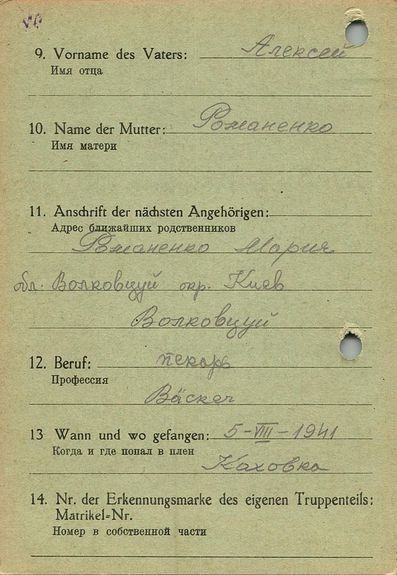 9. Vorname des Vaters: Алексей
Имя отца
10. Name der Mutter: Романенко
Имя матери
11. Anschrift der nächsten Angehörigen:
Адрес ближайших родственников
Романенко Мария
обл: Волковцуй окр. Киев
Волковцуй
12. Beruf: пекарь
Профессия
Bäcker
13 Wann und wo gefangen: 5-VIII-1941
Когда и где попал в плен
Каховка
14. Nr. der Erkennungsmarke des eigenen Truppenteils:
Matrikel-Nr.
Номер в собственной части